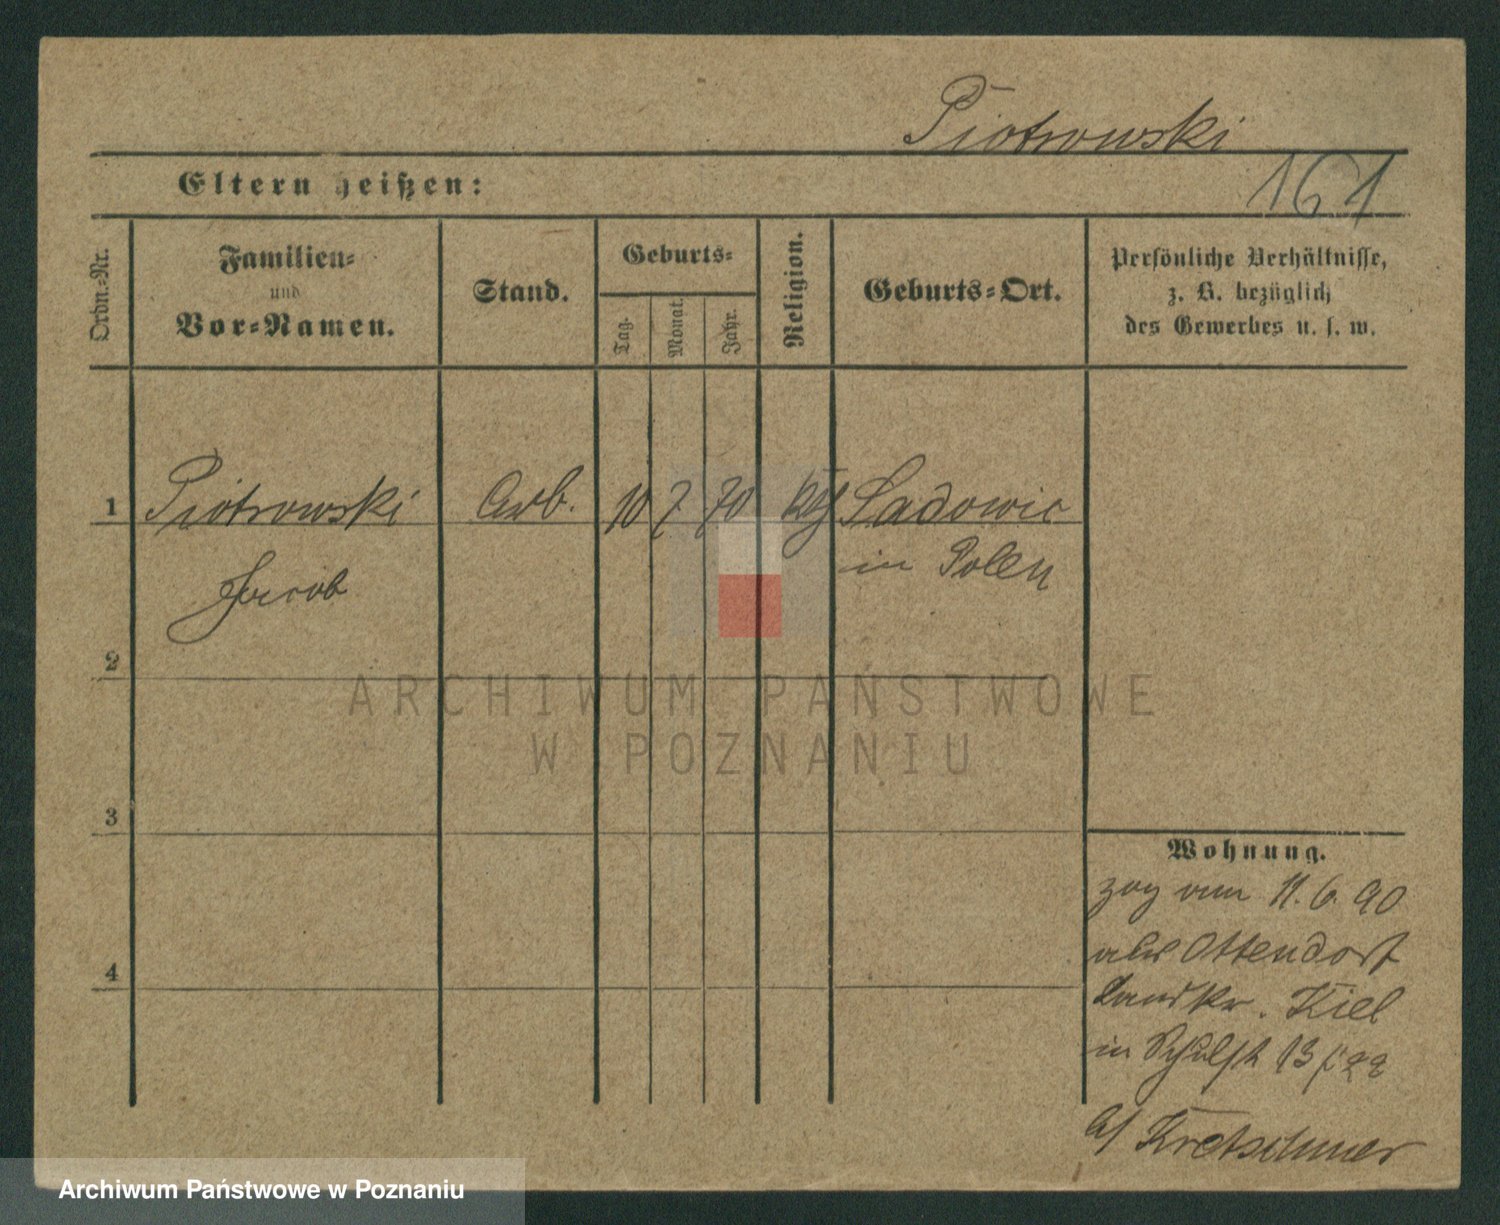 Piotrowski
161
Eltern heißen:
Ordn.-Nr.
Familien-
und
Vor-Namen.
Stand.
Geburts-
Tag.
Monat.
Jahr.
Religion.
Geburts-Ort.
Persönliche Verhältnisse,
z. B. bezüglich
des Gewerbes u. s. w.
1 Piotrowski Arb. 10 7 70 Sadowic
Jacob in Polen
2
3
4
Wohnung.
zog am 11.6.90
Ottendorf
Landkr. Kiel
in 13
b/ Kretschmer
ARCHIWUM PAŃSTWOWE
W POZNANIU
Archiwum Państwowe w Poznaniu